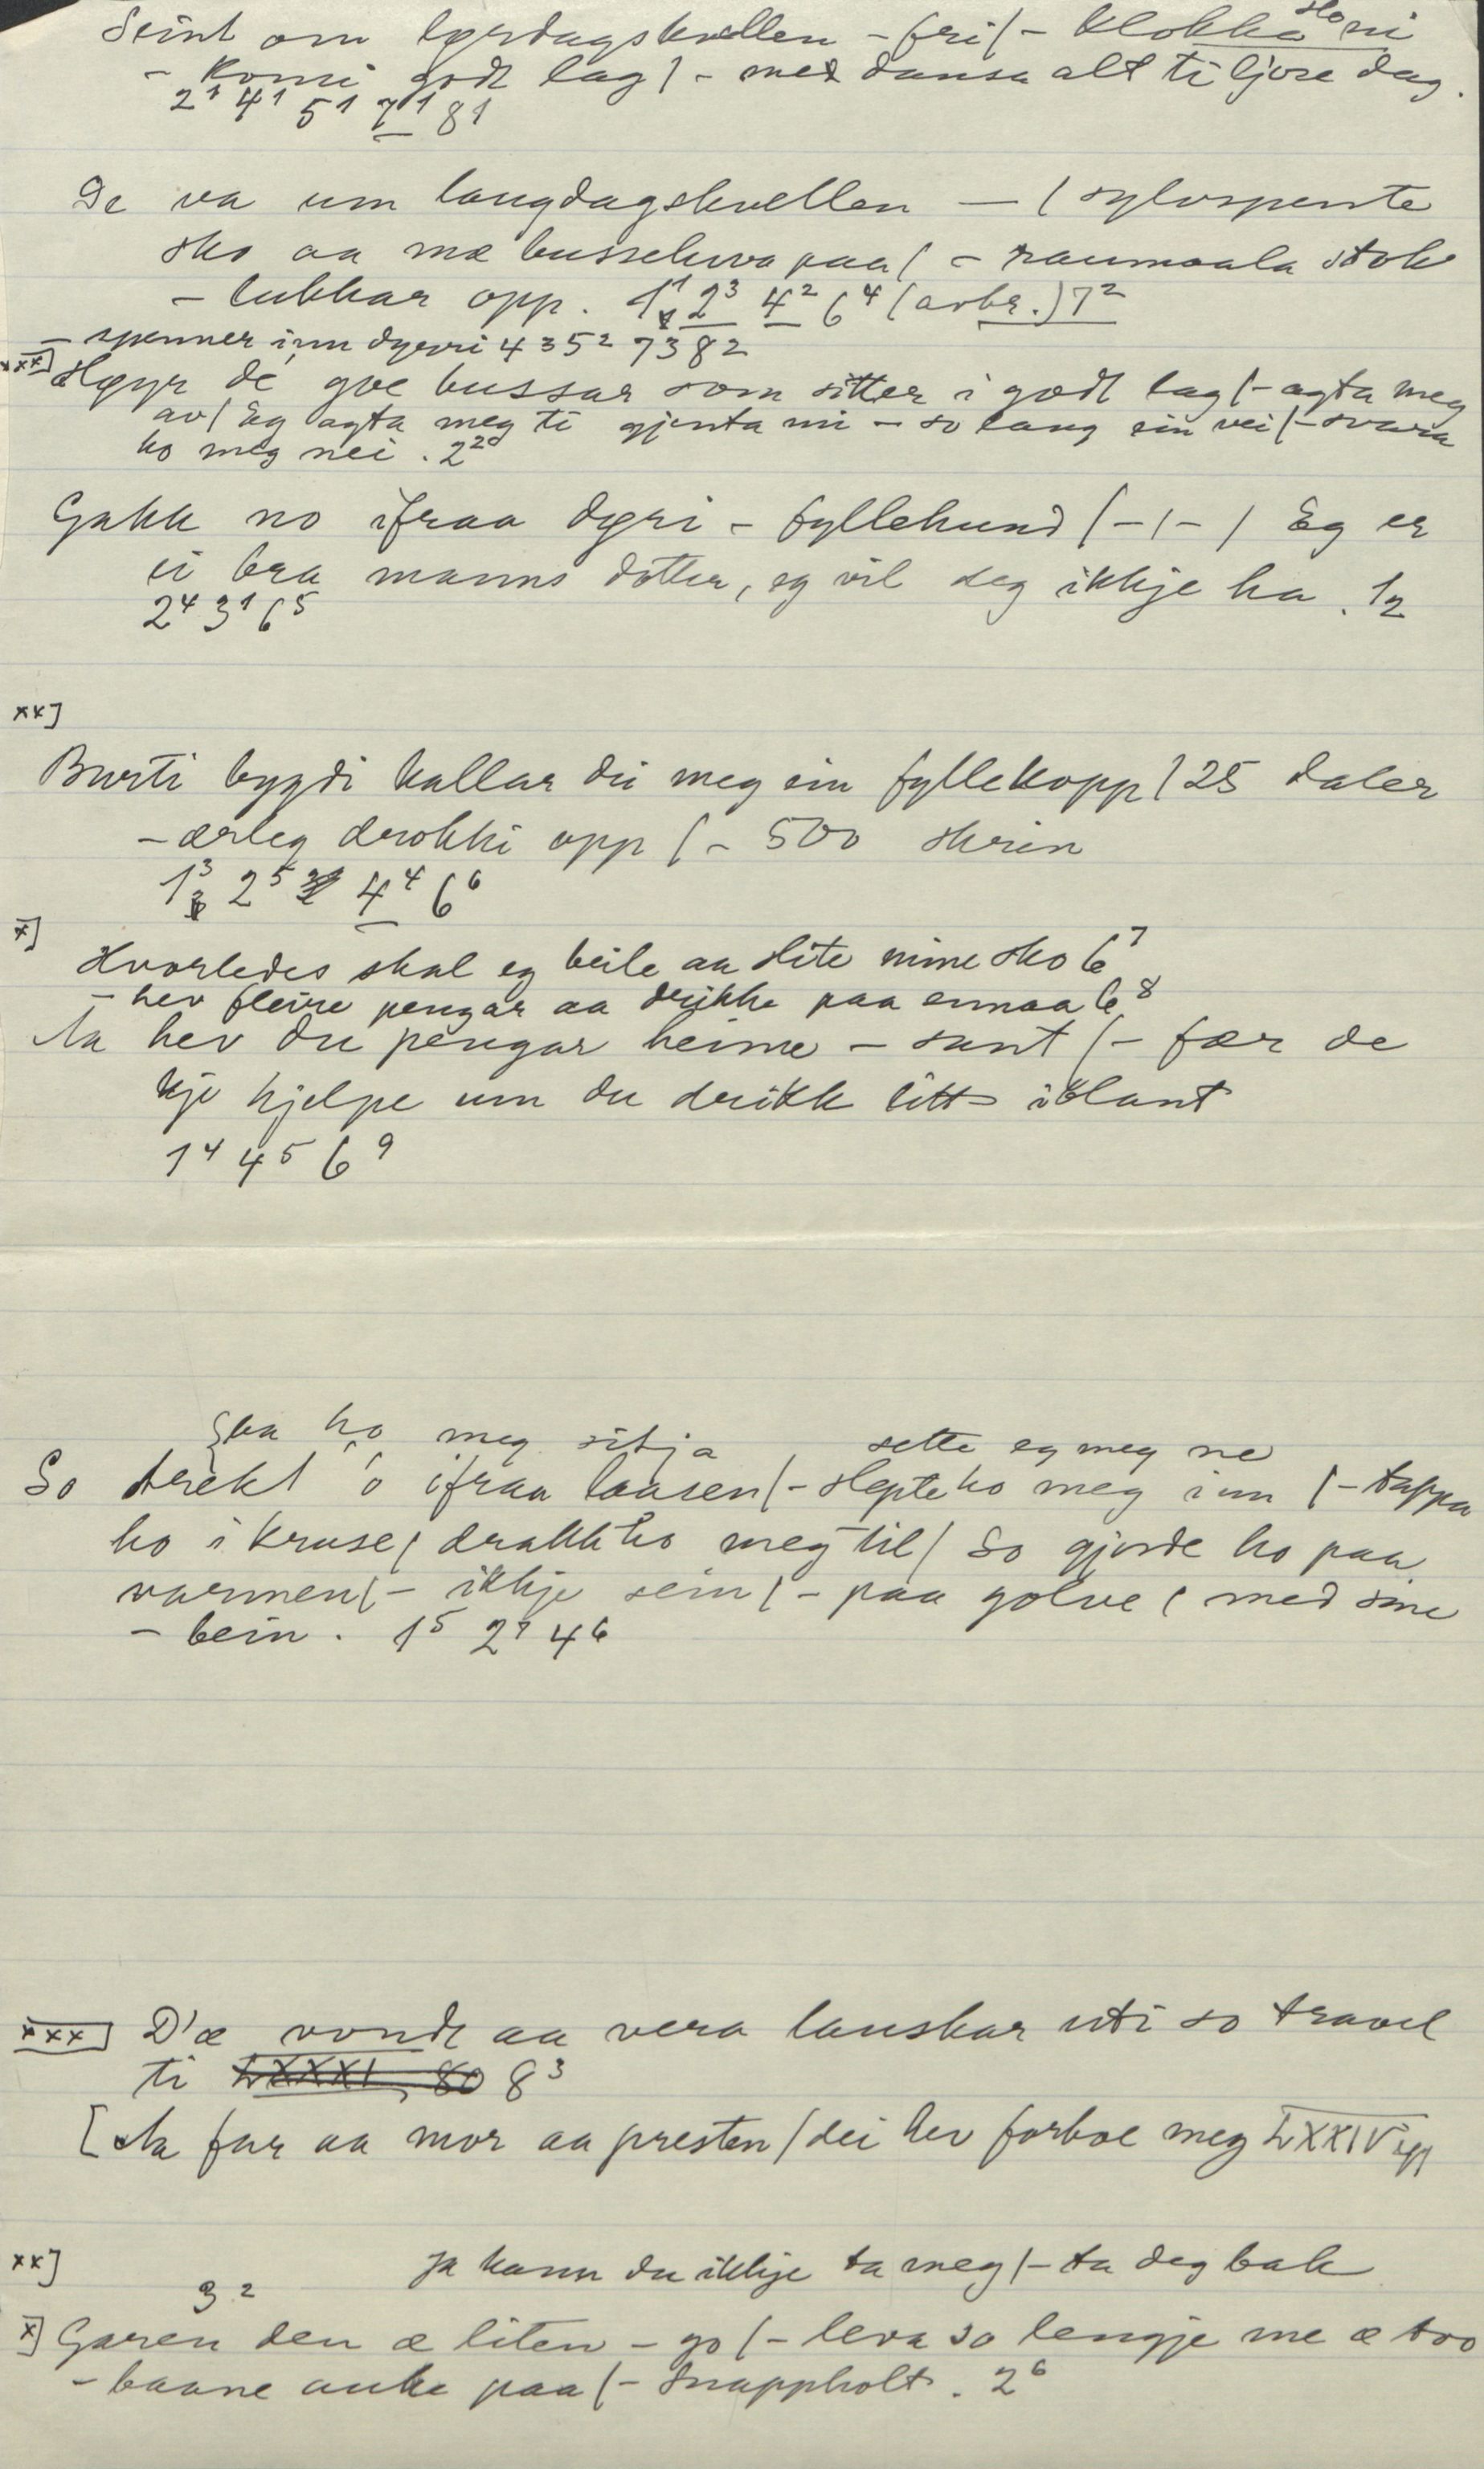 Seint om lørdagskvellen - fri/- klokka slo ni
- komi godt lag/- med dansa alt ti ljose dag.
2¹ 4¹ 5¹ 7¹ 8¹
De va um laugdagskvellen - / sylvspente
sko aa mæ busseluva paa/ - raumaala stok
- lukkar opp. 1¹ 2³ 4² 6⁴ (avbr.) 7²
- spenner inn dyrri 4³ 5² 7³ 8²
xxx] Høyr de goe bussar som sitter i godt lag/- agta meg
av/ Eg agta meg ti gjenta mi - so lang ein vei/- svara
ho meg nei. 2²
Gakk no ifraa dyri - fyllehund /-/-/ Eg er
ei bra manns dotter, eg vil deg ikkje ha. 1₂
2⁴ 3¹ 6⁵
xx]
Burti bygdi kallar du meg ein fyllekopp/ 25 daler
- ærleg drokki opp /- 500 skrin
1³ 2⁵ 4⁴ 6⁶
x]
Hvorledes skal eg beile aa slite mine sko 6⁷
- hev fleire pengar aa drikke paa ennaa 6⁸
Aa hev du pengar heime - sant /- fær de
kje hjelpe um du drikk litt iblant
1⁴ 4⁵ 6⁹
baa ho meg sitja sette eg meg ne
So trekt 'o ifraa laasen/- slepte ho meg inn /- tappa
ho i kruse/ drakk ho meg til/ So gjorde ho paa
varmen/- ikkje sein/- paa golve/ med sine
- bein. 1⁵ 2⁷ 4⁶
xxx] D'æ vondt aa vera lauskar uti so travel
ti LXXXI 80 8³
[Aa far aa mor aa presten/ dei hev forboe meg LXXIV
xx] Ja kann du ikkje ta meg/- ta deg bak
3²
x] Garen den æ liten - go /- leva so lengje me æ tvo
- baane auke paa/- Snappholt. 2⁶